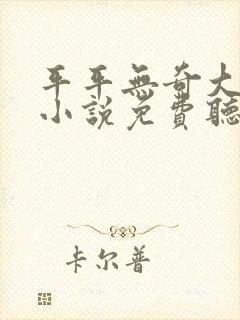 平平無奇大
小說免費聽
卡尔普